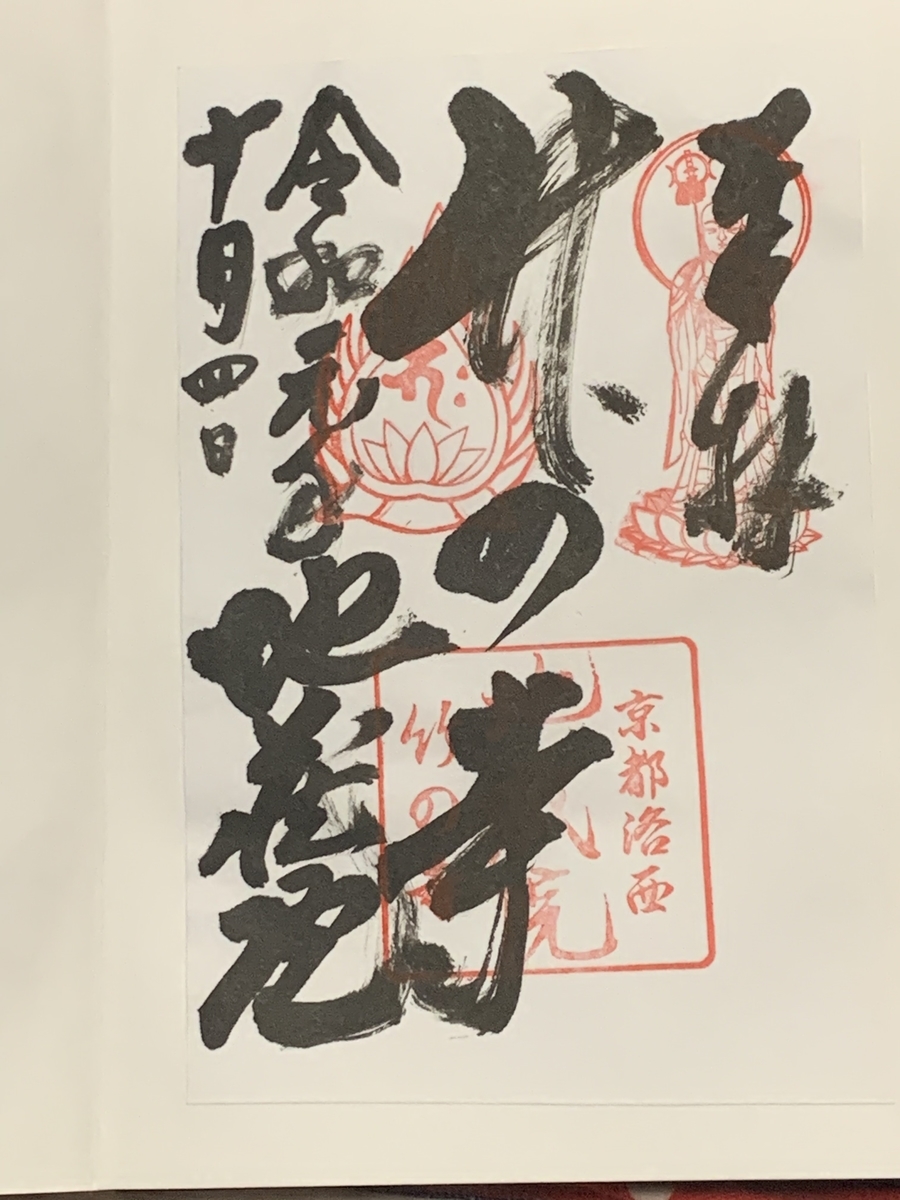 奉拝
竹の寺
令和元年
十月四日
地蔵院
京都洛西
地蔵院
竹の寺